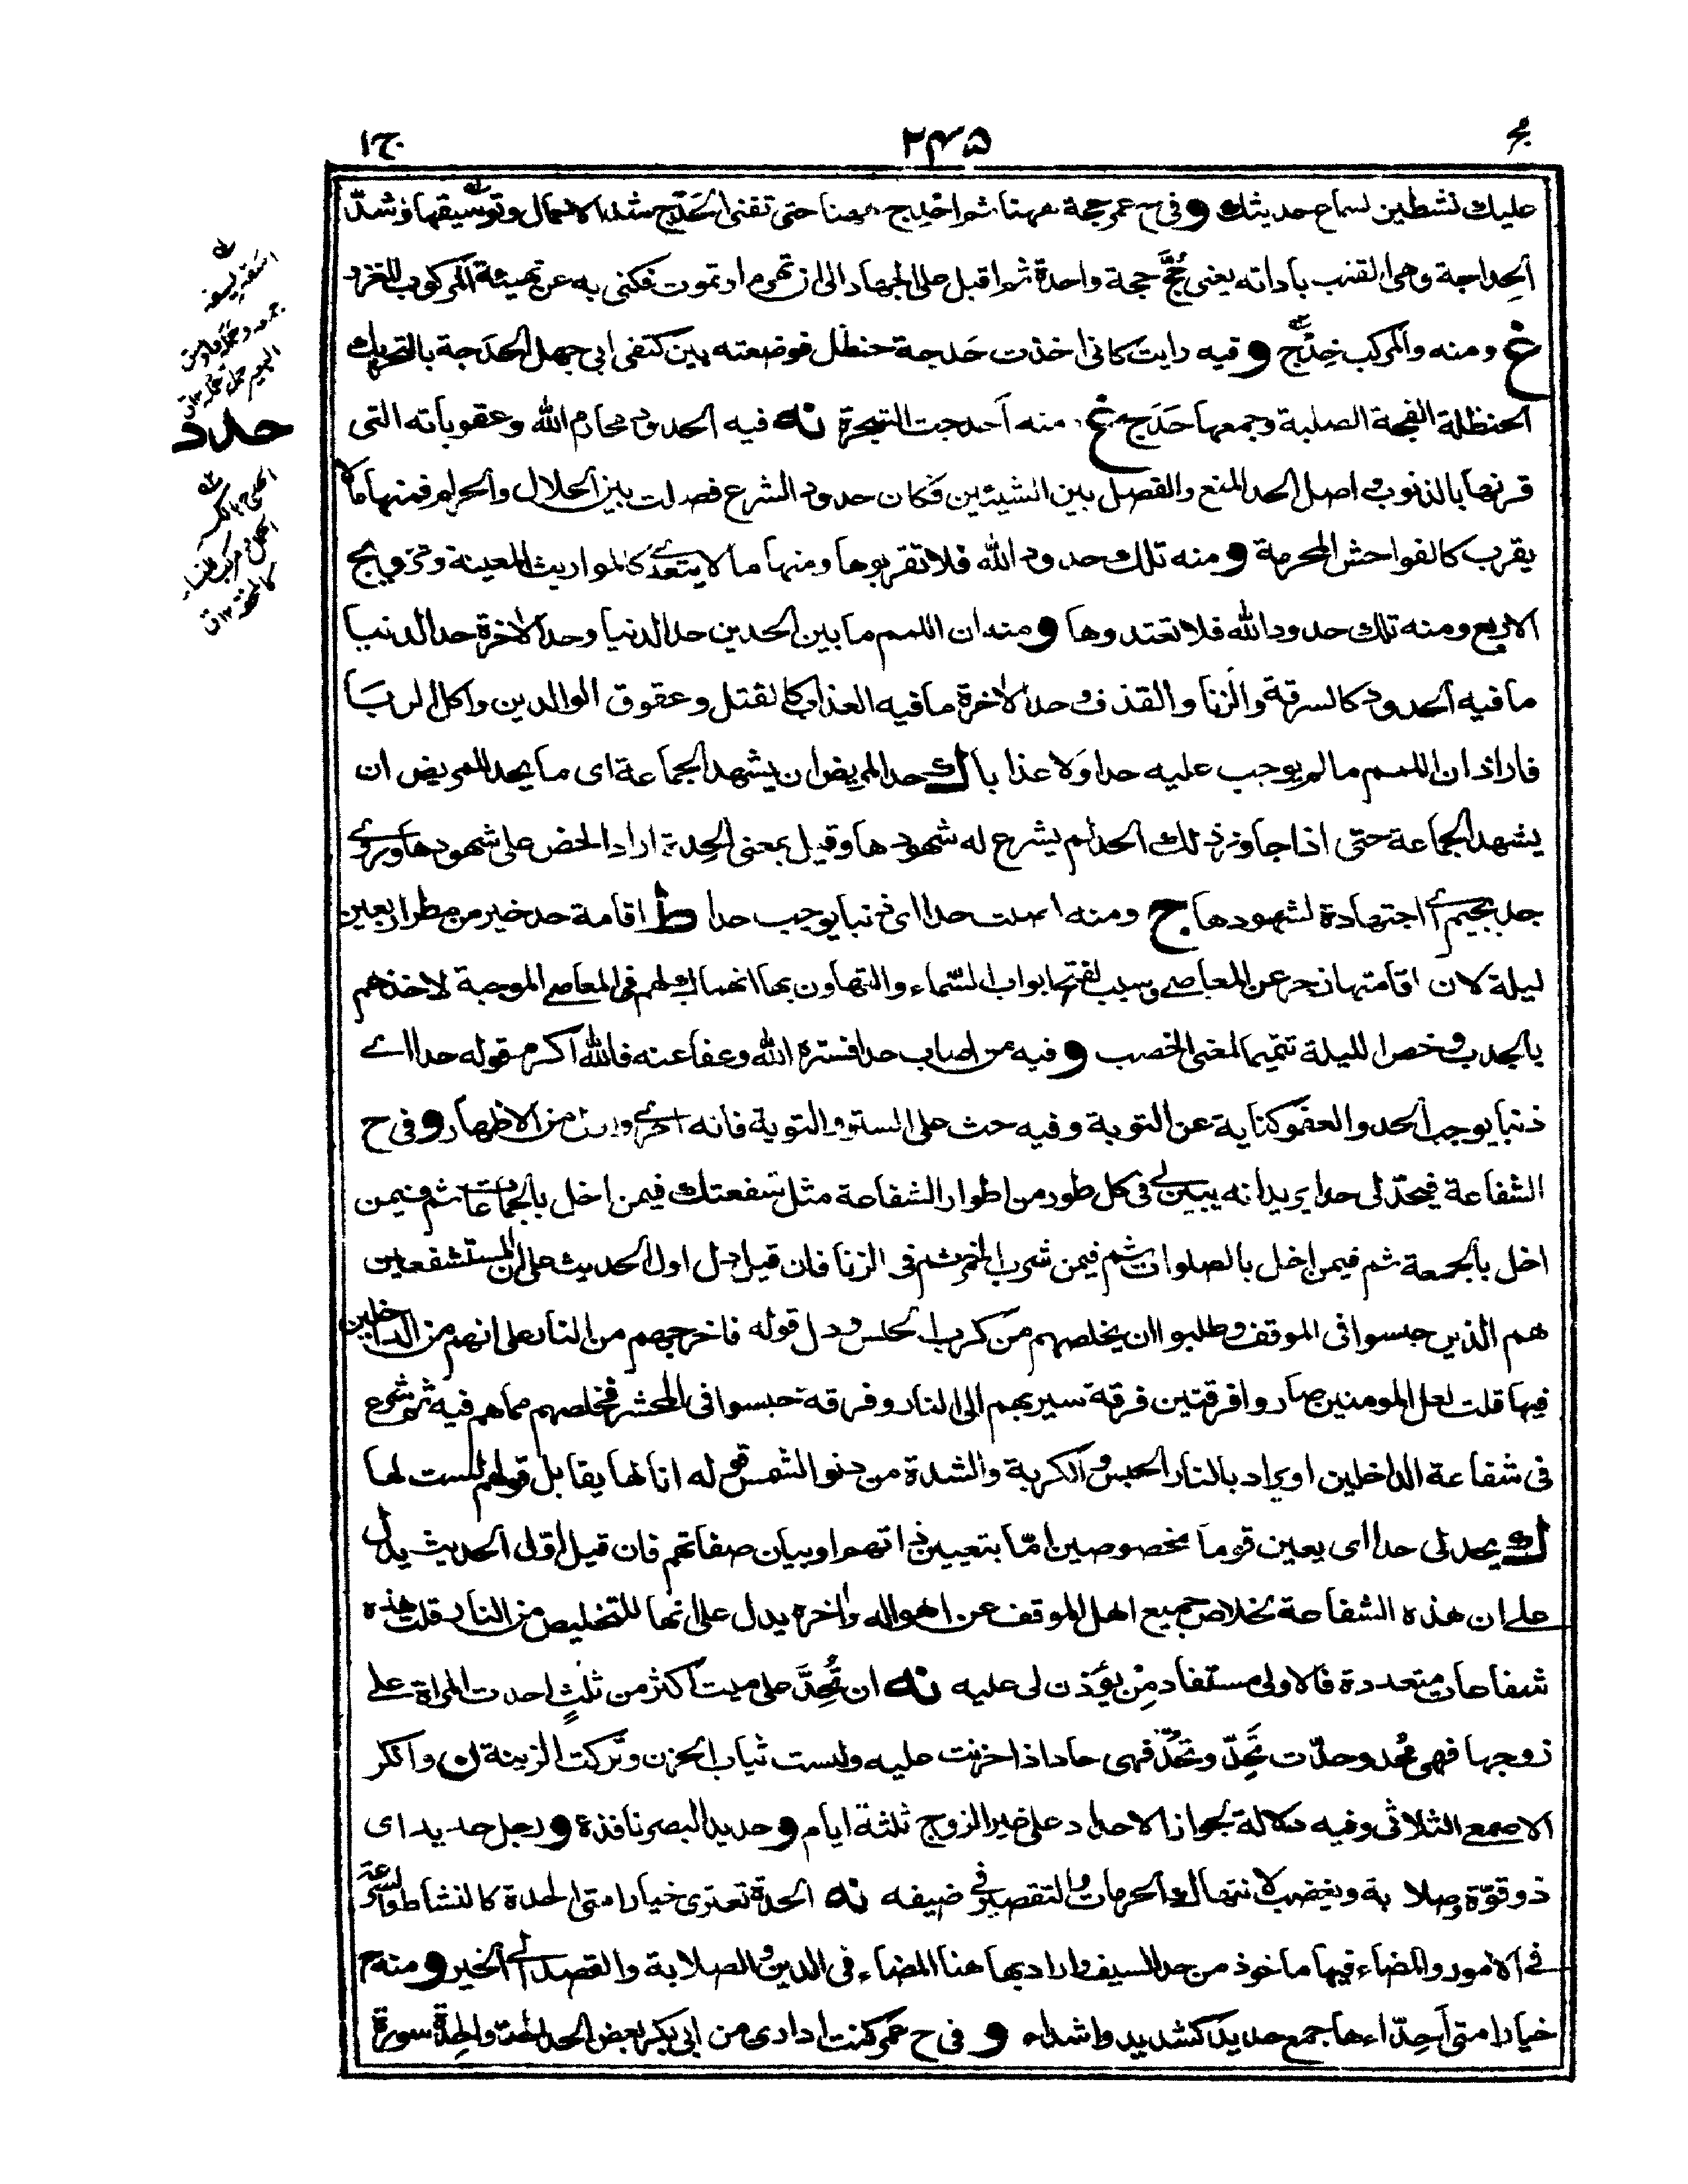 مجر
۲۴۵
ج۱
عليك نشطين لسماع حديثك و فى ح عمر حجة ههنا ثم احدج ههنا حتى تفنى الحدج شد الاحمال و توسيقها و شد
الحداجة وهى القتب باداته يعنى حج حجة واحدة ثم اقبل على الجهاد الى ان تهرم او تموت فكنى به عن تهيئة المركوب للغزو
غ ومنه والمركب حدج و فيه رايت كانى اخذت حدجة حنظل فوضعته بين كتفى ابى جهل الحدجة بالتحريك
الحنظلة الفجة الصلبة وجمعها حدج غ منه احدجت الشجرة نه فيه الحدود محارم الله وعقوباته التى
قرنها بالذنوب و اصل الحد المنع والفصل بين الشيئين فكان حدود الشرع فصلت بين الحلال والحرام فمنها ما لا
يقرب كالفواحش المحرمة و منه تلك حدود الله فلا تقربوها ومنها ما لا يتعدى كالمواريث المعينة وتزويج
الاربع ومنه تلك حدود الله فلا تعتدوها و منه ان اللمم ما بين الحدين حد الدنيا وحد الاخرة حد الدنيا
ما فيه الحدود كالسرقة والزنا والقذف و حد الاخرة ما فيه العذاب كالقتل وعقوق الوالدين واكل الربا
فاراد ان اللمم ما لم يوجب عليه حدا ولا عذابا ك حد المريض ان يشهد الجماعة اى ما يحد للمريض ان
يشهد الجماعة حتى اذا جاوز ذلك الحد لم يشرع له شهودها وقيل بمعنى الحدة اراد الحض على شهودها وروى
جد بجيم اى اجتهادة لشهودها ج ومنه اصبت حدا اى ذنبا يوجب حدا ط اقامة حد خير من مطر اربعين
ليلة لان اقامتها زجر عن المعاصى وسبب لفتح ابواب السماء والتهاون بها انهماك لهم فى المعاصى الموجبة لاخذهم
بالجدب و خص الليلة تتميما لمعنى الخصب و فيه من اصاب حدا فستره الله وعفا عنه فالله اكرم قوله حدا اى
ذنبا يوجب الحد والعفو كناية عن التوبة وفيه حث على الستر والتوبة فانه احرى من الاظهار و فى ح
الشفاعة فيحد لى حدا يريد انه يبين لى فى كل طور من اطوار الشفاعة مثل شفعتك فيمن اخل بالجماعات ثم فيمن
اخل بالجمعة ثم فيمن اخل بالصلوات ثم فيمن شرب الخمر ثم فى الزنا فان قيل دل اول الحديث على ان المستشفعين
هم الذين حبسوا فى الموقف وطلبوا ان يخلصهم من كرب الحبس و دل قوله فاخرجهم من النار على انهم من الداخلين
فيها قلت لعل المومنين صاروا فرقتين فرقة سير بهم الى النار وفرقة حبسوا فى المحشر فخلصهم مما هم فيه ثم شرع
فى شفاعة الداخلين او يراد بالنار الحبس و الكربة والشدة من دنو الشمس قوله انا لها يقابل قولهم لست لها
ك يحد لى حدا اى يعين قوما مخصوصين اما بتعيين ذاتهم او بيان صفاتهم فان قيل اولى الحديث يدل
على ان هذه الشفاعة لخلاص جميع اهل الموقف عن اهواله واخره يدل على انها للتخليص من النار قلت هذه
شفاعات متعددة فالاولى مستفاد من يؤذن لى عليه نه ان تحد على ميت اكثر من ثلث احدت المراة على
زوجها فهى محد وحدت تحد وتحد فهى حاد اذا حزنت عليه ولبست ثياب الحزن وتركت الزينة ن وانكر
الاصمعى الثلاثى وفيه دلالة لجواز الاحداد على غير الزوج ثلثة ايام و حديد البصر نافذة و رجل حديد اى
ذو قوة وصلابة ويغضب لانتهاك الحرمات والتقصير فى ضيفه نه الحدة تعترى خيار امتى الحدة كالنشاط والسرعة
فى الامور والمضاء فيها ماخوذ من حد السيف واراد بها هنا المضاء فى الدين و الصلابة والقصد الى الخير و منه ح
خيار امتى احداءها جمع حديد كشديد واشداء و فى ح عمر كنت ادارى من ابى بكر بعض الحد الحد والحدة سورة
حدد